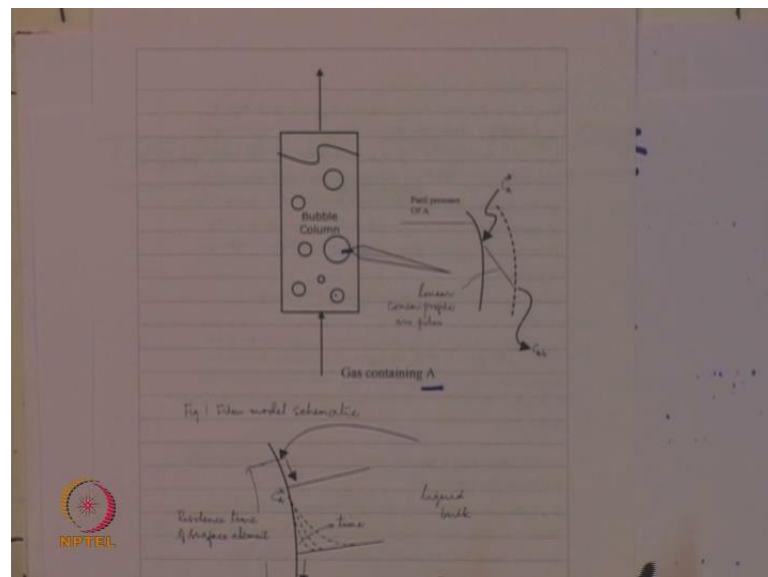 Bubble
Column
Partil pressure
Of A
C*A
Linear
Concn profile
in film
CAb
Gas containing A
Fig 1 Film model schematic
C*A
Residence time
of surface element
time
Liquid
bulk
NPTEL